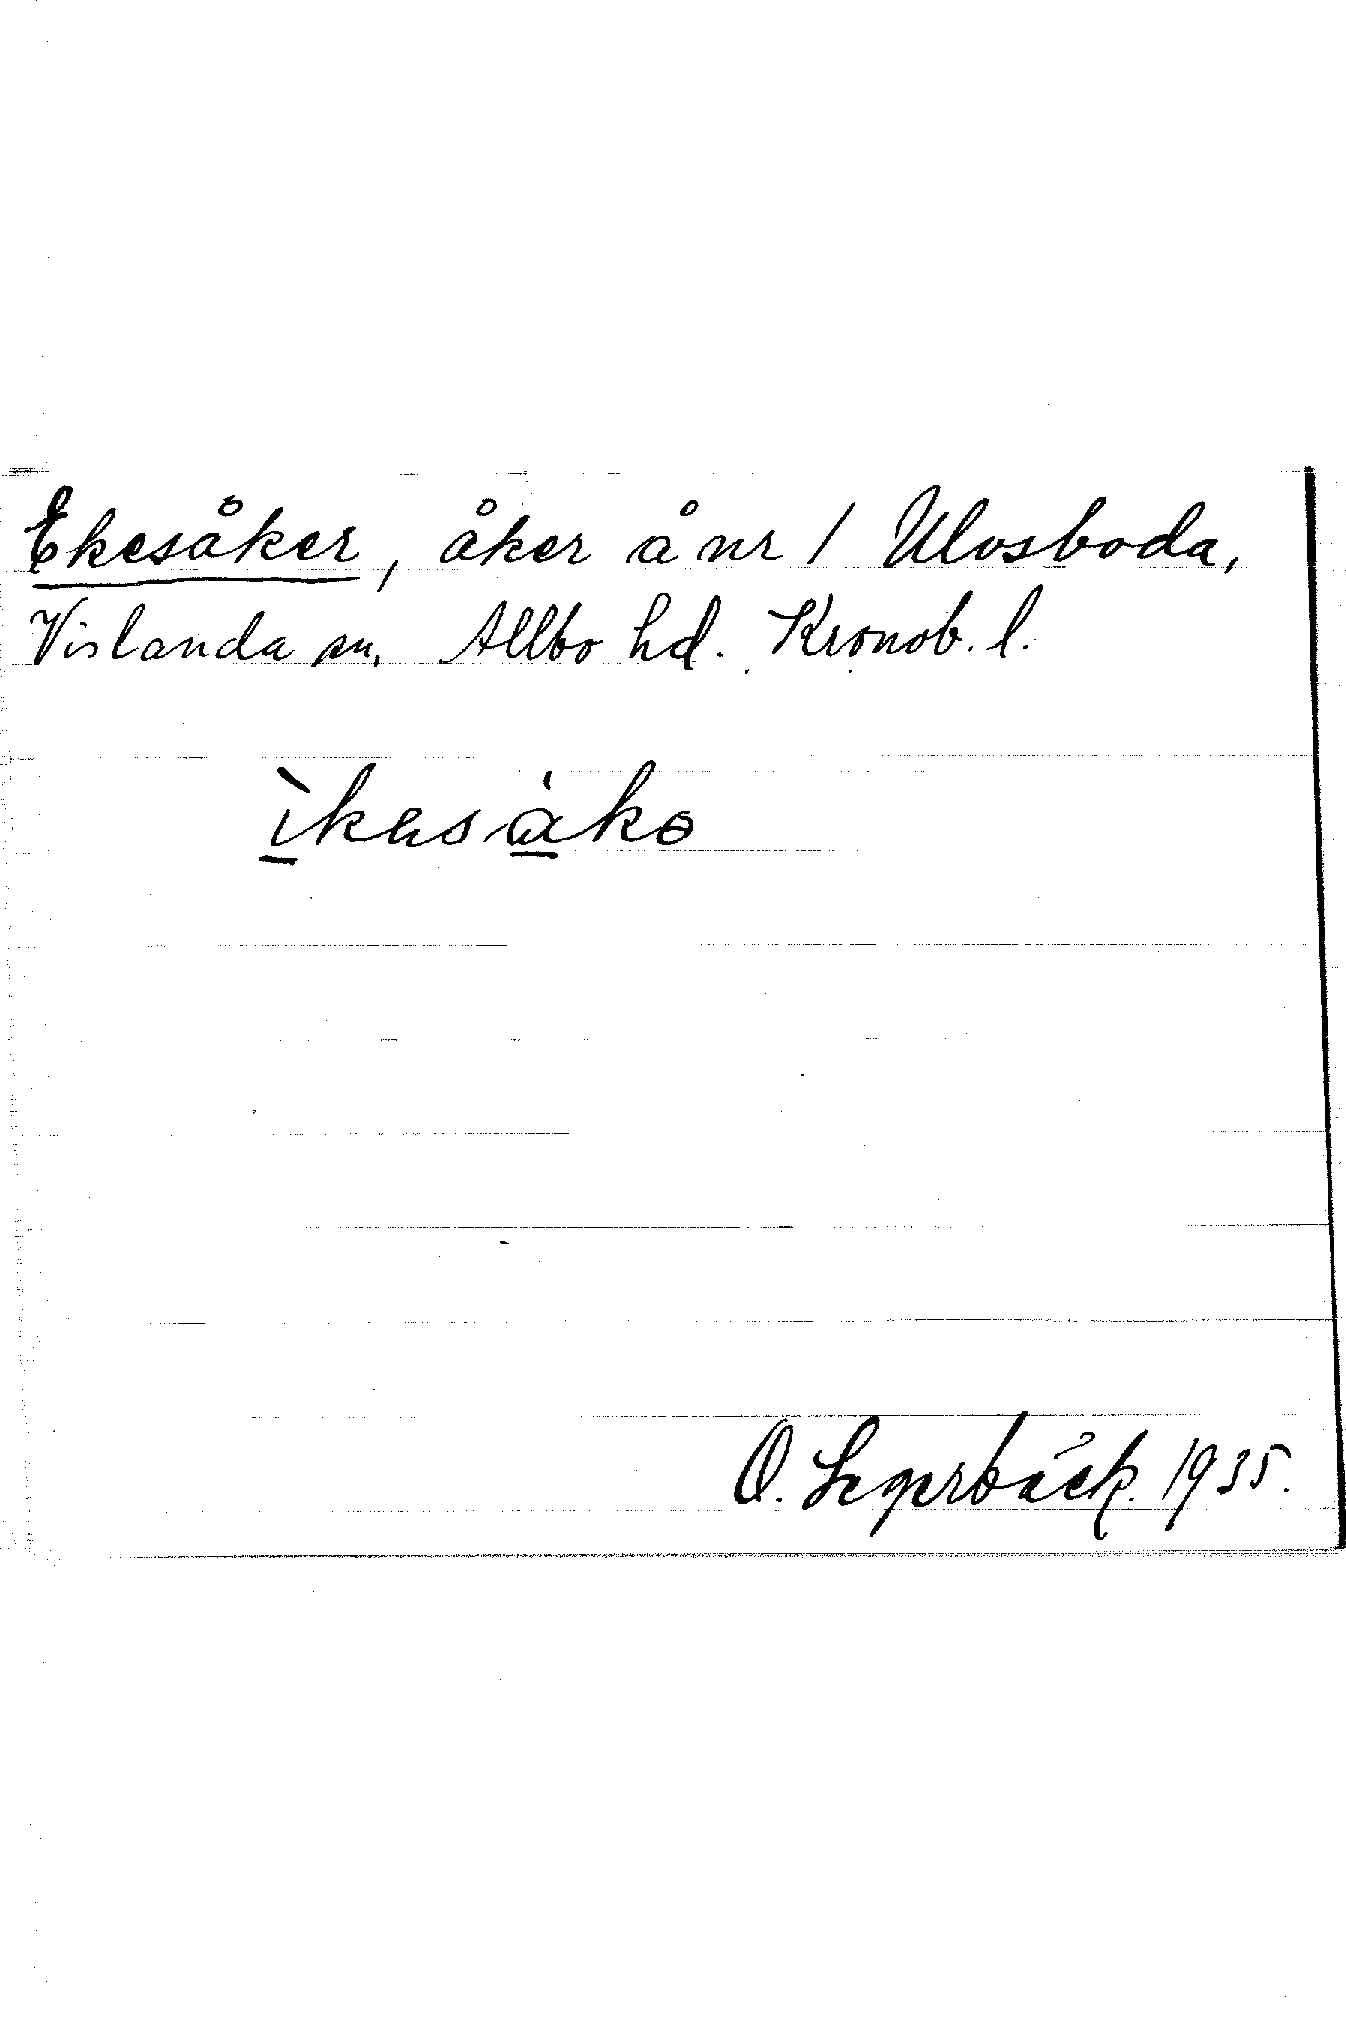 Ekesåker, åker å nr 1 Ulvsboda,
Vislanda sn. Allbo hd. Kronob. l.
O. Lagerbäck. 1935.